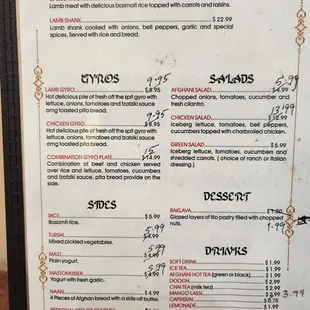 Lamb meat with delicious basmati rice topped with carrots and raisins.
LAMB SHANK $ 22.99
Lamb shank cooked with onions, bell peppers, garlic and special
spices, Served with rice and bread.
GYROS
9.95
LAMB GYRO $8.95
Hot delicious pile of fresh off the spit gyro with
lettuce, onions, tomatoes and tatziki sauce
omg toasted pita bread.
9.95
CHICKEN GYRO $8.95
Hot delicious pile of fresh off the spit gyro with
lettuce, onions, tomatoes and tatziki sauce
omg toasted pita bread.
15
COMBINATION GYRO PLATE $14.99
Combination of beef and chicken served
over rice and lettuce, tomatoes, cucumbers
and tatziki sauce, pita bread provide on the
side.
SIDES
RICE $ 5.99
Basamti rice.
5.99
TURSHI
Mixed pickled vegetables.
5.99
MAST
Plain yogurt.
5.99
MASTOMUSIER
Yogurt with fresh garlic.
NAAN $ 4.99
4 Pieces of Afghan bread with a side off butter.
SALADS
5.99
AFGHANI SALAD $4.99
Chopped onions, tomatoes, cucumber and
fresh cilantro.
13.99
CHICKEN SALAD $12.99
Iceberg lettuce, tomatoes, bell peppers,
cucumbers topped with charbroiled chicken.
GREEN SALAD $5.99
Iceberg lettuce, tomatoes, cucumbers and
shredded carrots. ( choice of ranch or Italian
dressing.)
DESSERT
BAKLAVA
Glazed layers of filo pastry filled with chopped
nuts.
1.99
DRINKS
SOFT DRINK $1.99
ICE TEA $1.99
AFGHANI HOT TEA (green or black) $1.99
DOOGH $2.99
CHAI TEA (milk tea) $2.99
MANGO LASSI 3.99
CAPRISUN $1.75
LEMONADE $1.99